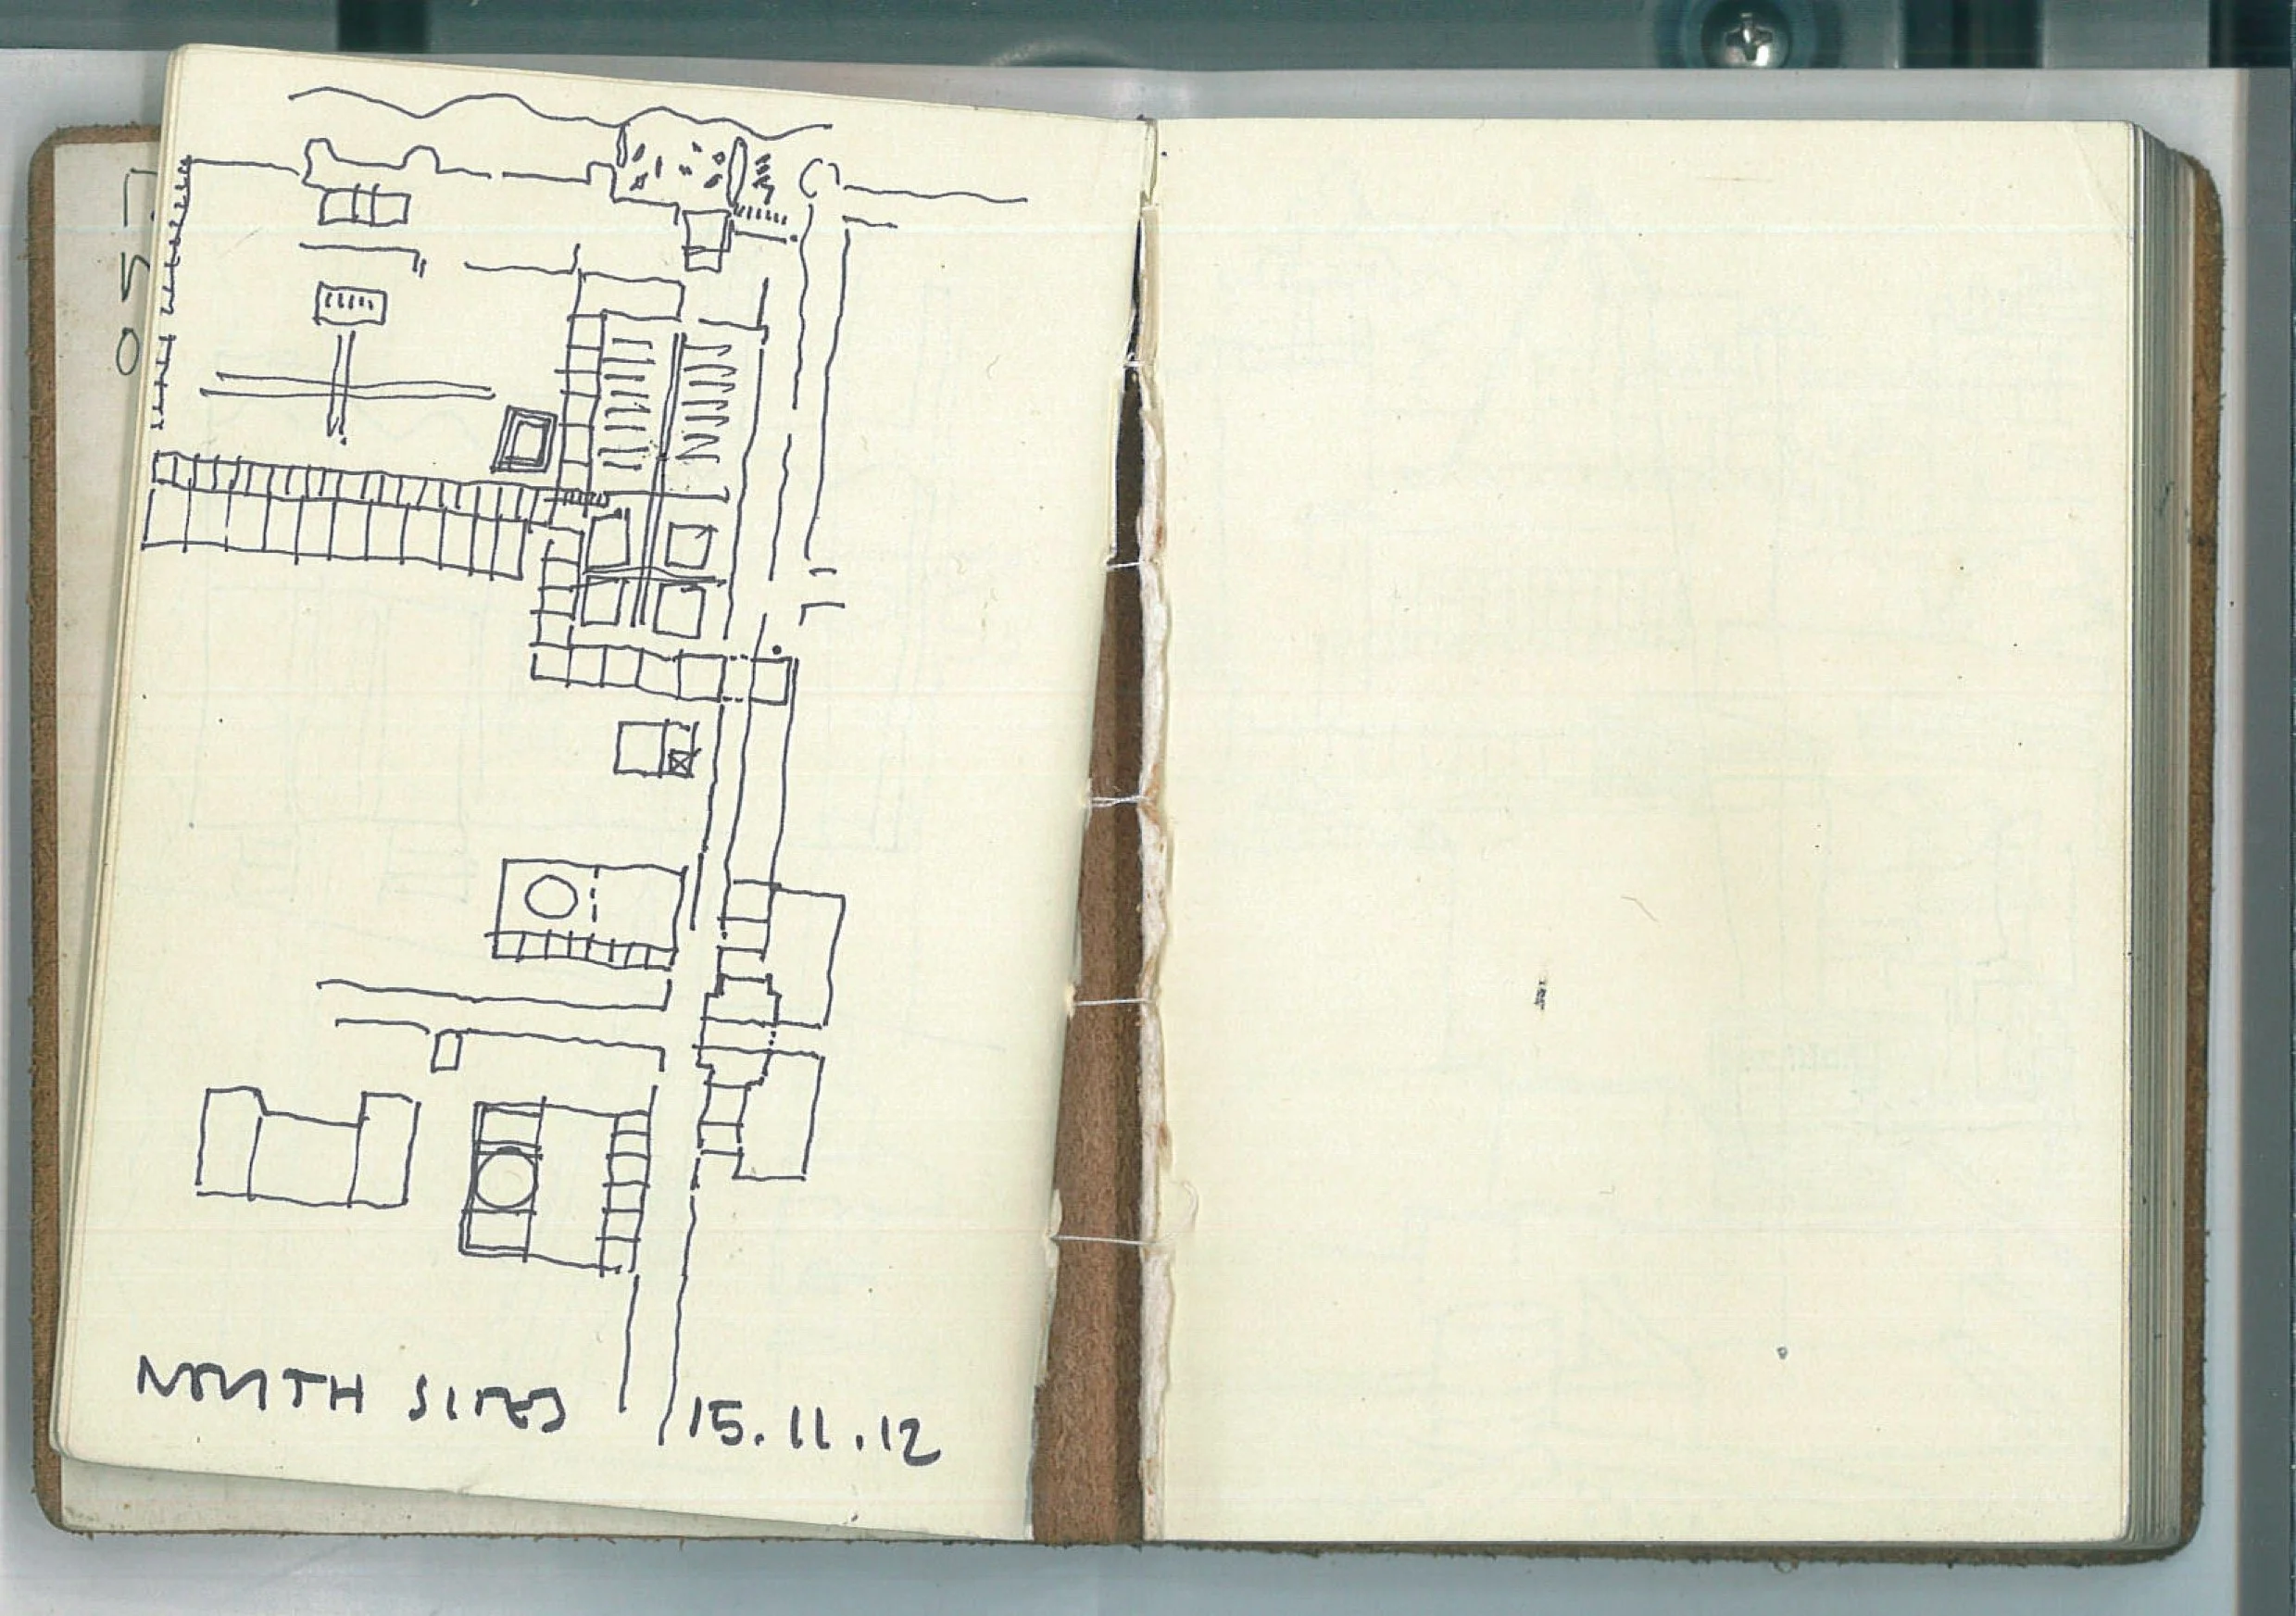 057
NORTH SITES 15.11.12